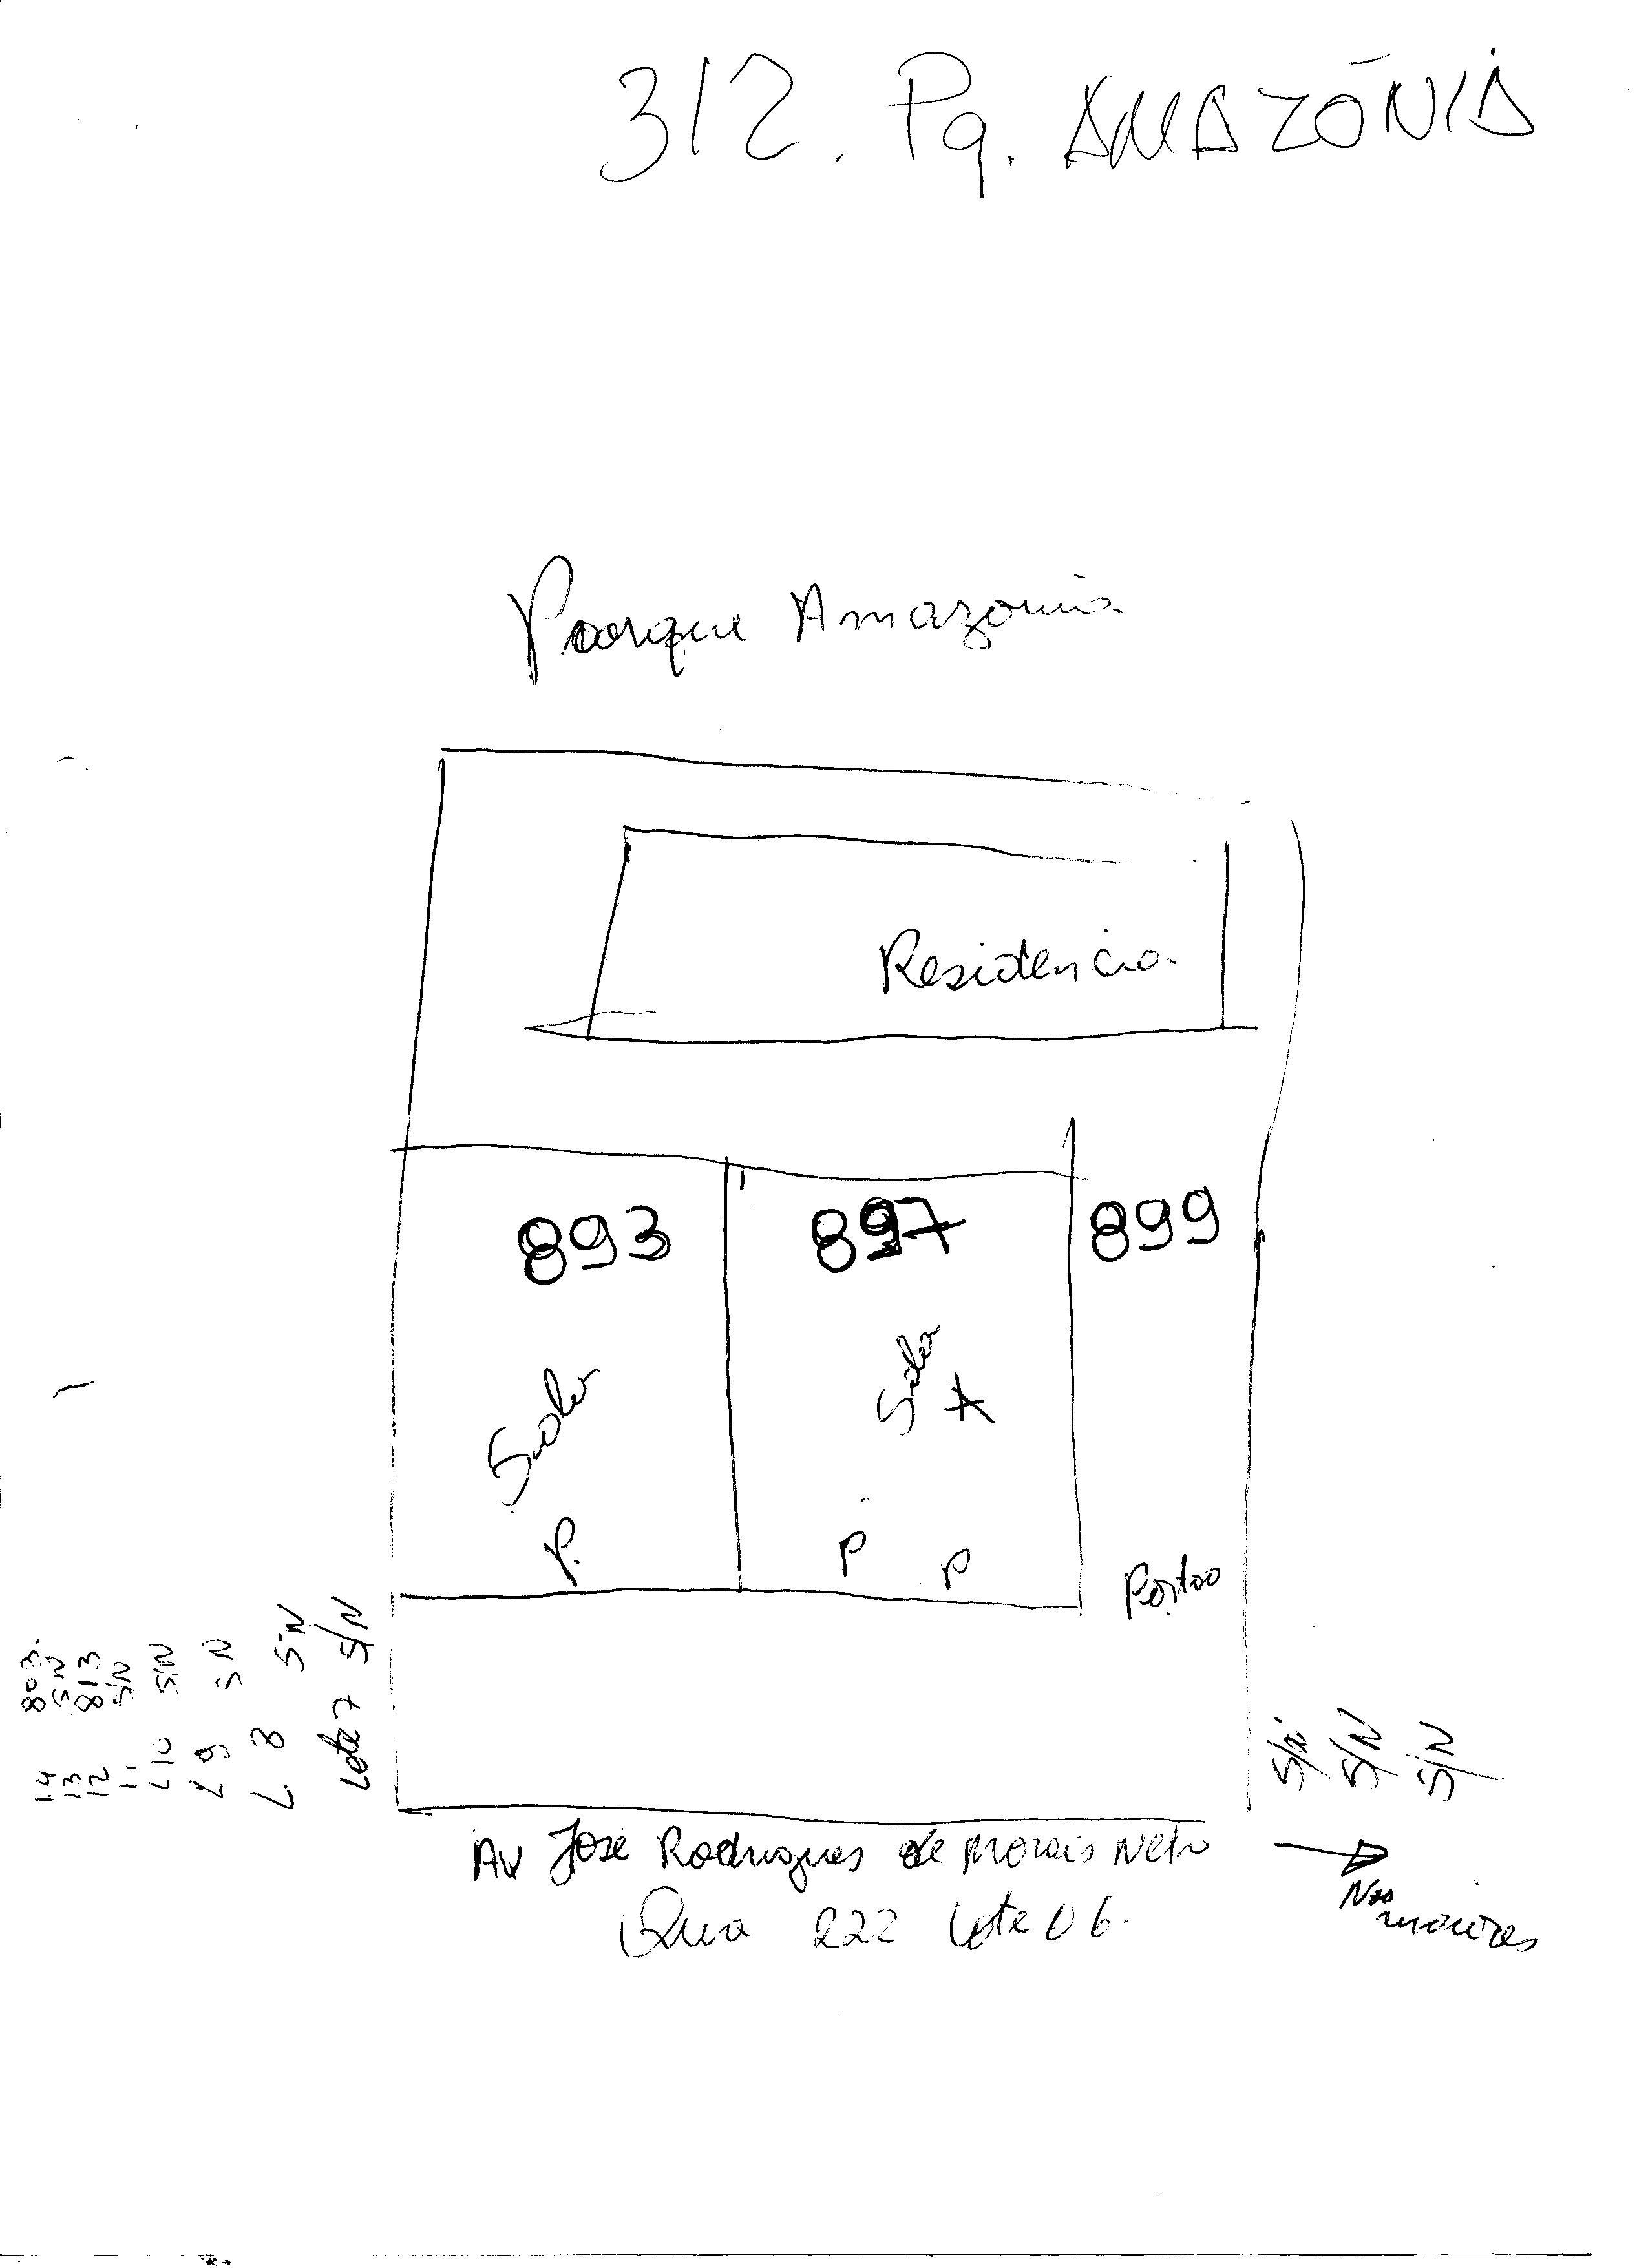 312. Pq. AMAZÔNIA
Parque Amazonia
Residencia
893 897 899
Sala Sala
A
P. P P
Portão
14 803
13 S/N
12 813
11 S/N
L 10 S/N
L 9 S N
L. 8 S/N
Lote 7 S/N
S/N
S/N
S/N
Av José Rodrigues de Morais Neto
Qua 222 Lote 06.
Nºs maiores